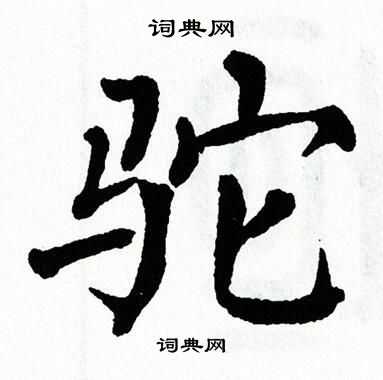 词典网
驼
词典网